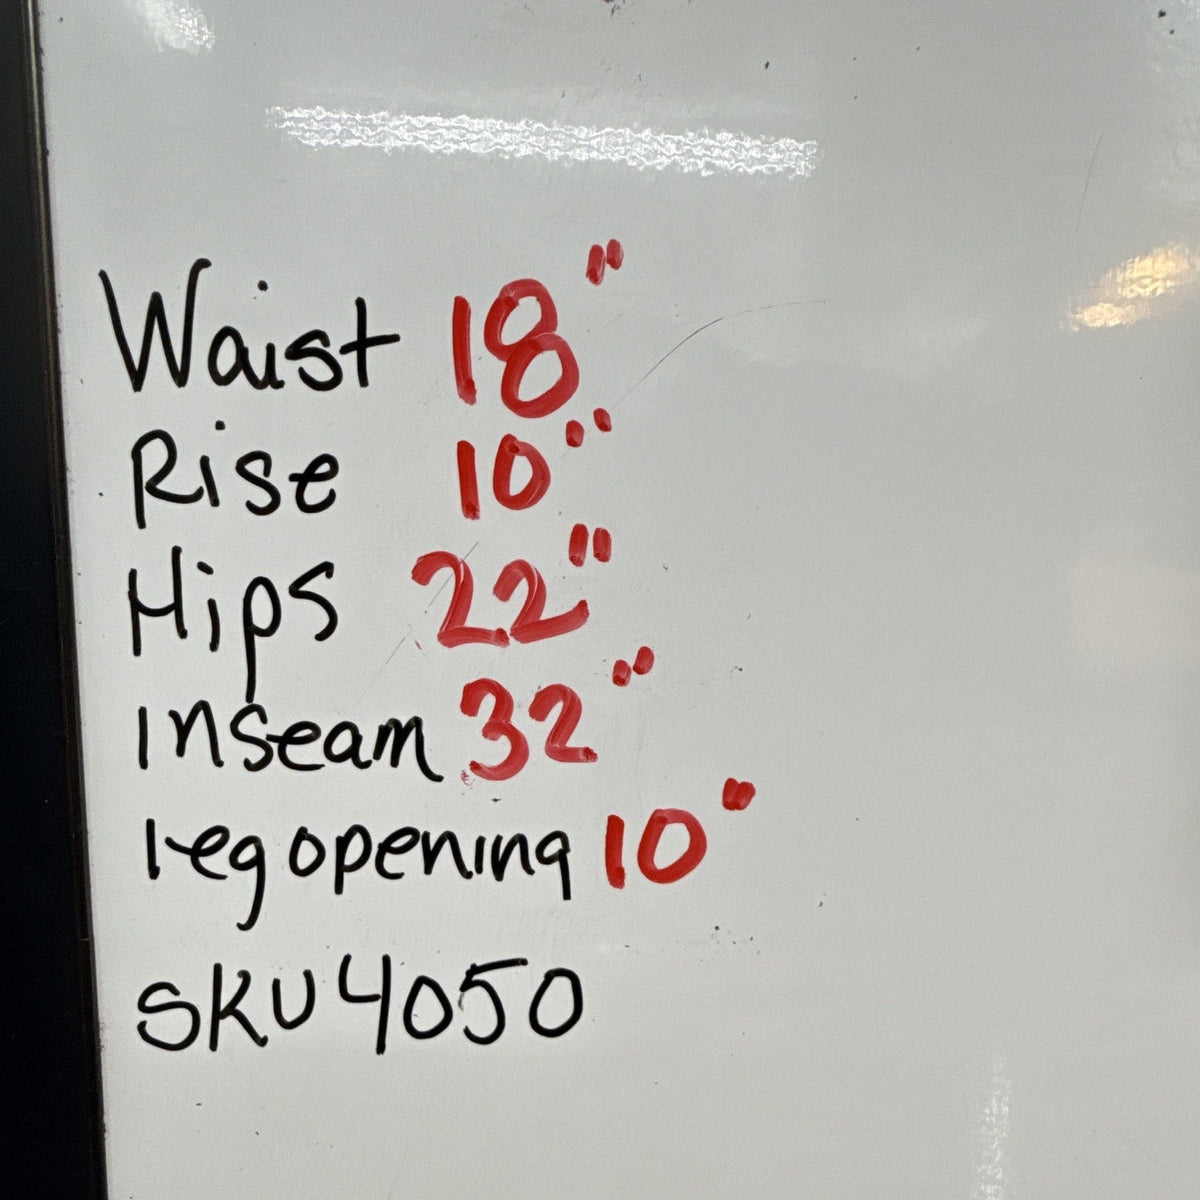 Waist 18"
Rise 10"
Hips 22"
Inseam 32"
leg opening 10"
SKU 4050